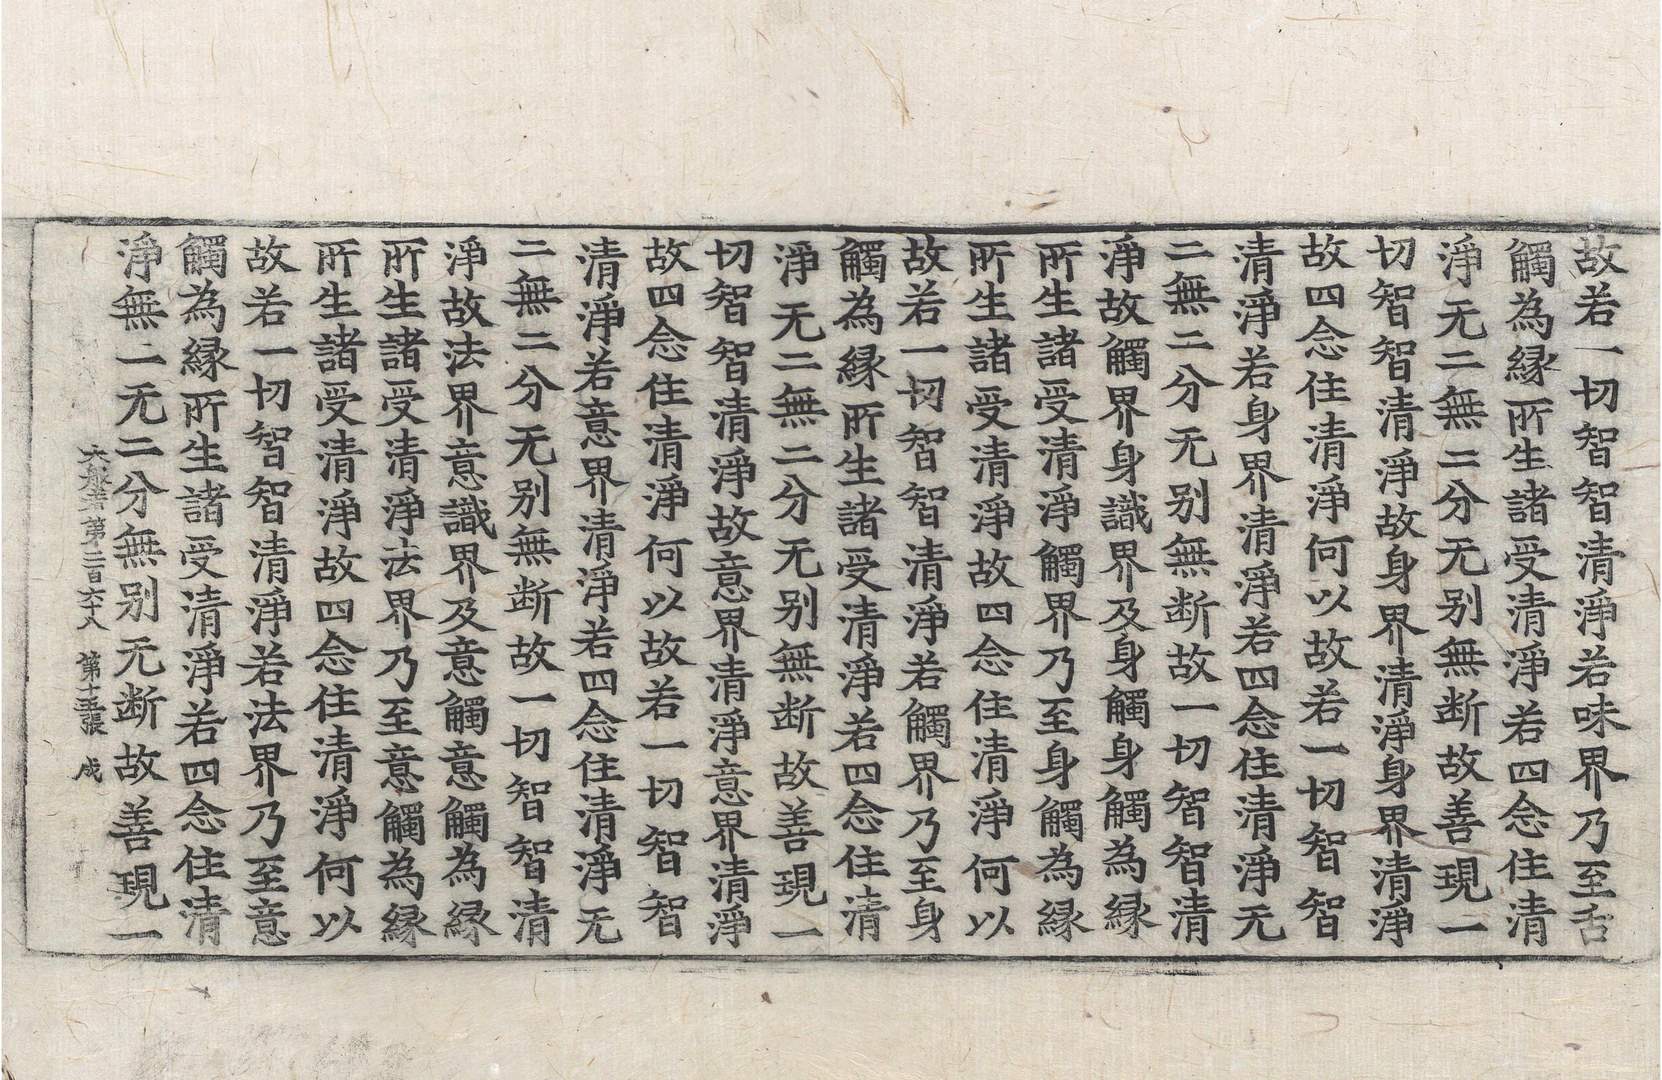 故若一切智智清淨若味界乃至舌
觸為縁所生諸受清淨若四念住清
淨无二無二分无别無断故善現一
切智智清淨故身界清淨身界清淨
故四念住清淨何以故若一切智智
清淨若身界清淨若四念住清淨无
二無二分无别無断故一切智智清
淨故觸界身識界及身觸身觸為縁
所生諸受清淨觸界乃至身觸為縁
所生諸受清淨故四念住清淨何以
故若一切智智清淨若觸界乃至身
觸為縁所生諸受清淨若四念住清
淨无二無二分无别無断故善現一
切智智清淨故意界清淨意界清淨
故四念住清淨何以故若一切智智
清淨若意界清淨若四念住清淨无
二無二分无别無断故一切智智清
淨故法界意識界及意觸意觸為縁
所生諸受清淨法界乃至意觸為縁
所生諸受清淨故四念住清淨何以
故若一切智智清淨若法界乃至意
觸為縁所生諸受清淨若四念住清
淨無二无二分無别无断故善現一
大般若第二百六十八 第十五張 成